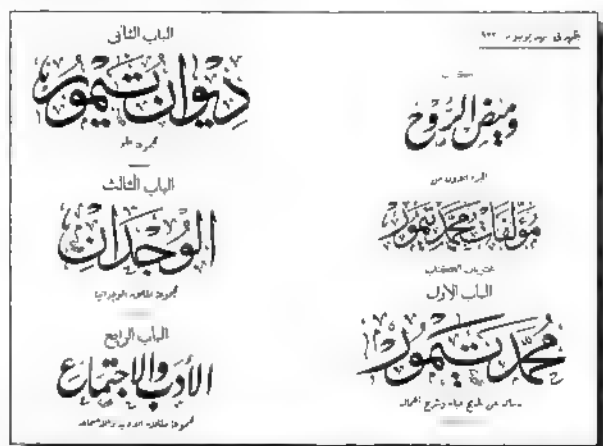 يظهر في يونيو
كتاب
وميض الروح
الجزء الاول من
مؤلفات محمد تيمور
محتويات الكتاب
الباب الاول
محمد تيمور
رسالة عن تاريخ حياته وشرح اعماله
الباب الثاني
ديوان تيمور
مجموعة نظم
الباب الثالث
الوُجدَان
مجموعة مقالاته الوجدانية
الباب الرابع
الأدب والاجتماع
مجموعة مقالاته الادبية والاجتماعية